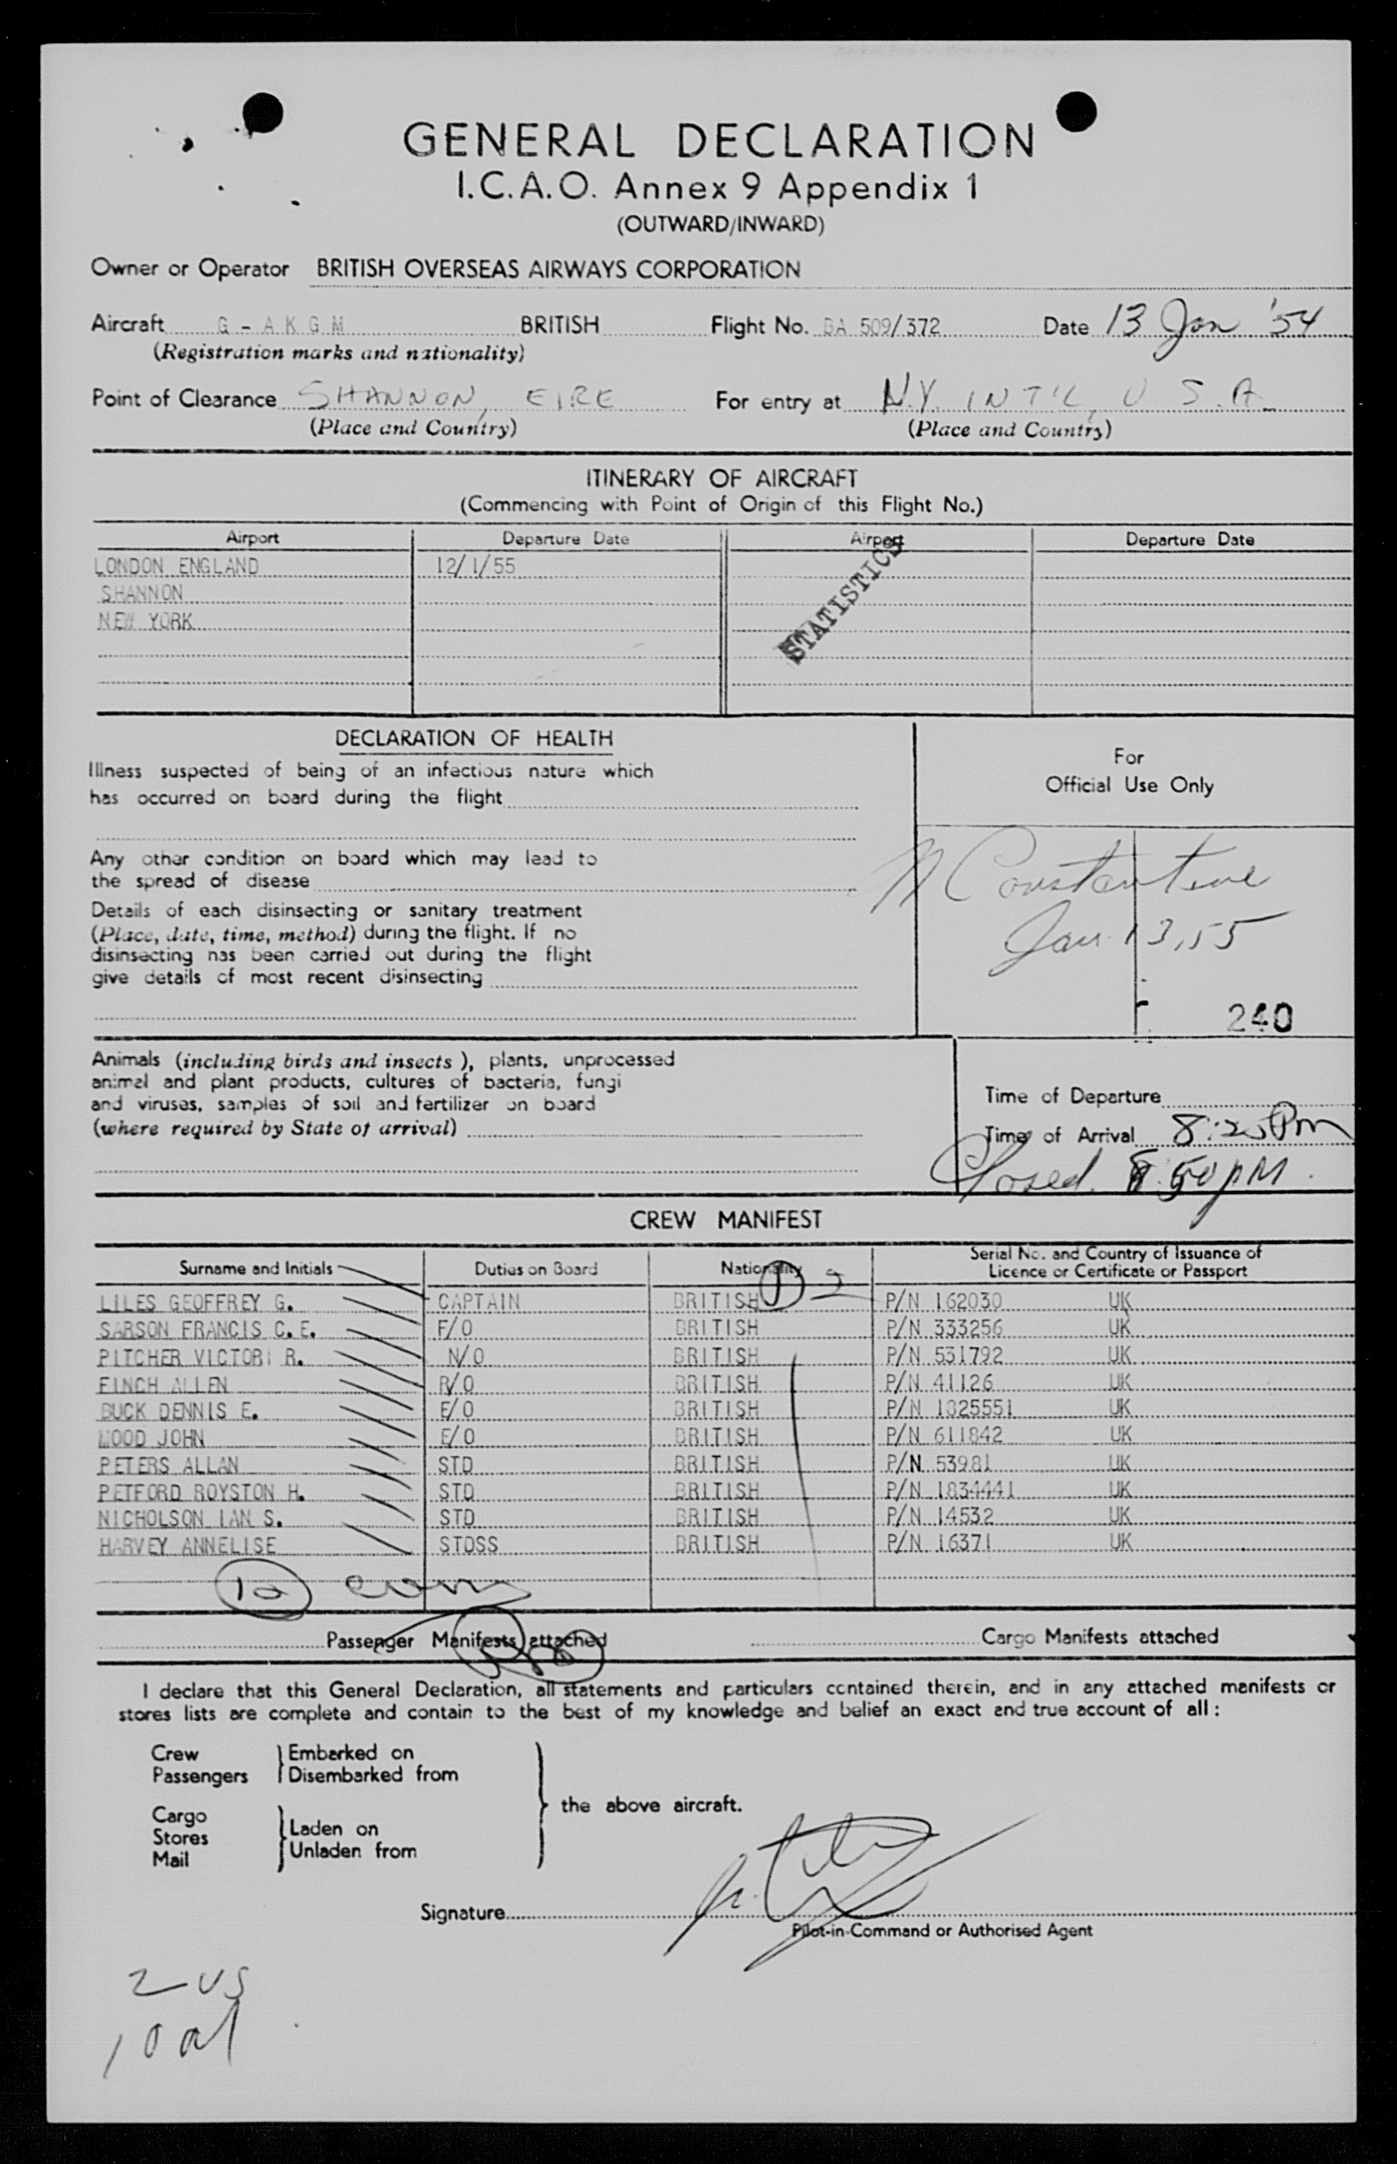 GENERAL DECLARATION
I.C.A.O. Annex 9 Appendix 1
(OUTWARD/INWARD)
Owner or Operator BRITISH OVERSEAS AIRWAYS CORPORATION
Aircraft G - A K G M BRITISH Flight No. BA 509/372 Date 13 Jan '54
(Registration marks and nationality)
Point of Clearance SHANNON, EIRE For entry at N.Y. INT'L, U S.A.
(Place and Country) (Place and Country)
ITINERARY OF AIRCRAFT
(Commencing with Point of Origin of this Flight No.)
Airport Departure Date Airport Departure Date
LONDON ENGLAND 12/1/55
SHANNON
NEW YORK
STATISTICS
DECLARATION OF HEALTH
Illness suspected of being of an infectious nature which
has occurred on board during the flight
Any other condition on board which may lead to
the spread of disease
Details of each disinsecting or sanitary treatment
(Place, date, time, method) during the flight. If no
disinsecting has been carried out during the flight
give details of most recent disinsecting
For
Official Use Only
N Constantine
Jan 13, 55
240
Animals (including birds and insects), plants, unprocessed
animal and plant products, cultures of bacteria, fungi
and viruses, samples of soil and fertilizer on board
(where required by State of arrival)
Time of Departure
Time of Arrival 8:20 Pm
Closed. 8:50 PM.
CREW MANIFEST
Surname and Initials Duties on Board Nationality Serial No. and Country of Issuance of
Licence or Certificate or Passport
LILES GEOFFREY G. CAPTAIN BRITISH P/N 162030 UK
SARSON FRANCIS C.E. F/O BRITISH P/N 333256 UK
PITCHER VICTORI R. N/O BRITISH P/N 531792 UK
FINCH ALLEN R/O BRITISH P/N 41126 UK
BUCK DENNIS E. E/O BRITISH P/N 1325551 UK
WOOD JOHN E/O BRITISH P/N 611842 UK
PETERS ALLAN STD BRITISH P/N 53981 UK
PETFORD ROYSTON H. STD BRITISH P/N 1834441 UK
NICHOLSON IAN S. STD BRITISH P/N 14532 UK
HARVEY ANNELISE STDSS BRITISH P/N 16371 UK
10
Passenger Manifests attached Cargo Manifests attached
I declare that this General Declaration, all statements and particulars contained therein, and in any attached manifests or
stores lists are complete and contain to the best of my knowledge and belief an exact and true account of all :
Crew Embarked on
Passengers Disembarked from
the above aircraft.
Cargo
Stores Laden on
Mail Unladen from
Signature
Pilot-in-Command or Authorised Agent
2 US
10 al